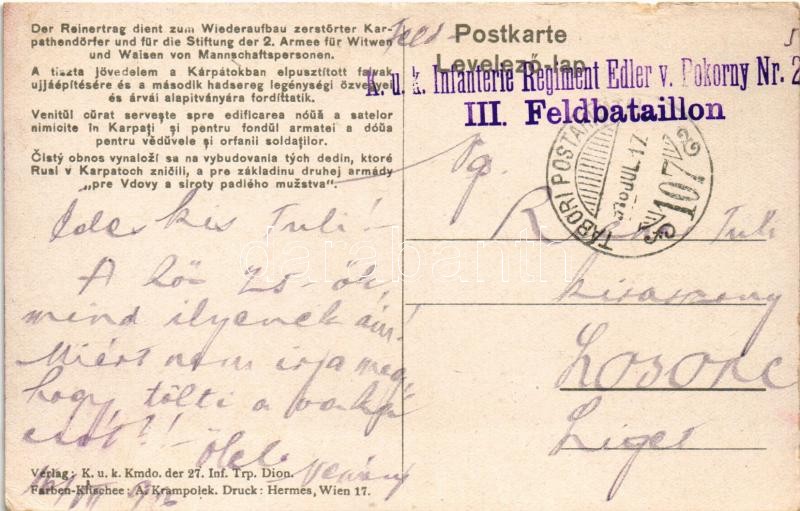 Der Reinertrag dient zum Wiederaufbau zerstörter Kar-
pathendörfer und für die Stiftung der 2. Armee für Witwen
und Waisen von Mannschaftspersonen.
A tiszta jövedelem a Kárpátokban elpusztitott falvak
ujjáépitésére és a második hadsereg legénységi özvegyei
és árvái alapitványára fordittatik.
Venitül cŭrat serveşte spre edificarea nóŭă a satelor
nimicite în Karpaţi şi pentru fondŭl armatei a dóŭa
pentru vĕdŭvele şi orfanii soldaţilor.
Čistý obnos vynaloží sa na vybudovania tých dedin, ktoré
Rusi v Karpatoch zničili, a pre základinu druhej armády
„pre Vdovy a siroty padlého mužstva“.
Feld
Postkarte
Levelező-lap
K. u. k. Infanterie Regiment Edler v. Pokorny Nr. 2
III. Feldbataillon
TÁBORI POSTA
JUL. 17
107
Édes kis Tuli!
A hő 25-ök
mind ilyenek ám!
Miért nem irja meg,
hogy tölti a
Ölel
Tuli
kisasszony
Losonc
Liget
Verlag: K. u. k. Kmdo. der 27. Inf. Trp. Dion.
Farben-Klischee: A. Krampolek. Druck: Hermes, Wien 17.